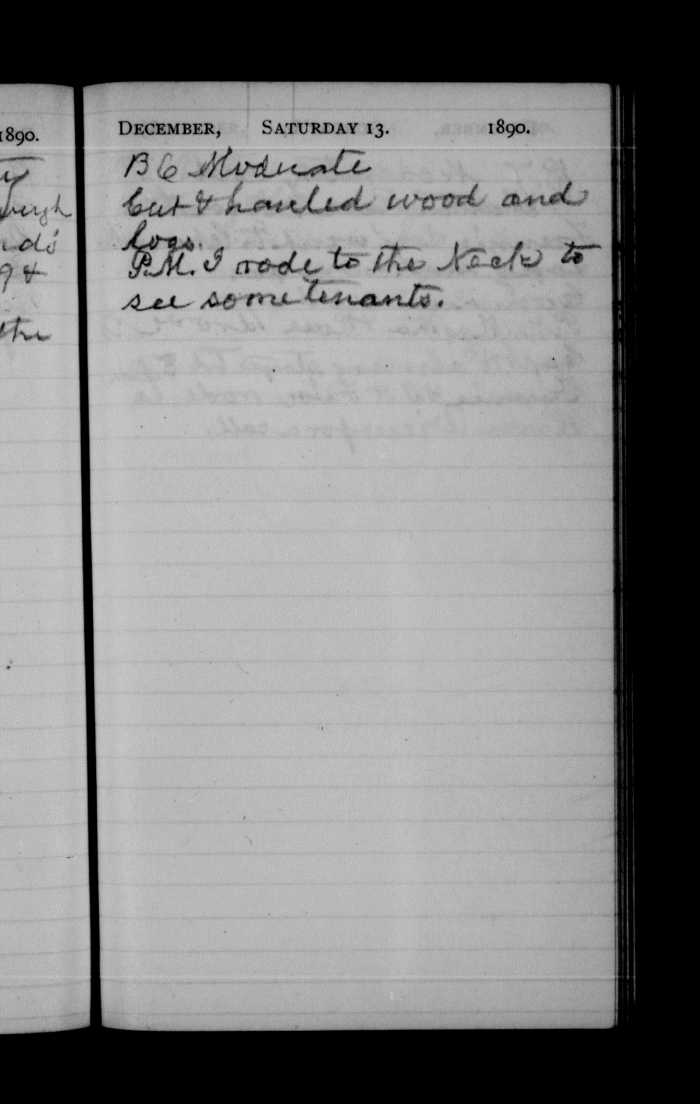 1890.
ds
9 &
the
DECEMBER, SATURDAY 13. 1890.
B C Moderate
Cut & hauled wood and
logs.
P.M. I rode to the Neck to
see some tenants.